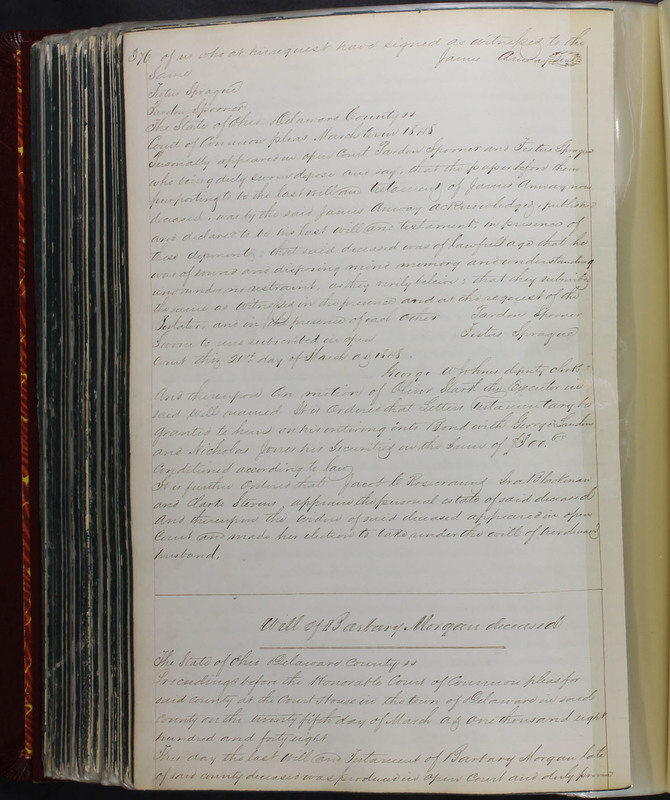 376 of us who at his request have signed as witnesses to the
Same James Anway Seal
Festus Sprague
Pardon Spooner
The State of Ohio, Delaware County ss
Court of Common pleas March term 1848
Personally appeared in open Court Pardon Spooner and Festus Sprague
who being duly sworn depose and say, that the paper before them
purporting to be the last will and testament of James Anway now
deceased, was by the said James Anway acknowledged, published
and declared to be his last will and testament, in presence of
these deponents: that said deceased was of lawful age that he
was of sound and disposing mind memory and understanding
and under no restraint. as they verily believe; that they subscribed
the same as witnesses in the presence and at the request of the
Testator, and in the presence of each other Pardon Spooner
Sworn to and subscribed in open Festus Sprague
Court this 21st day of March AD 1848.
George W Johns deputy clerk
And thereupon On motion of Oliver Stark the Executor in
said Will named It is Ordered that Letters testamentary be
granted to him, on his entering into Bond with George
and Nicholas Jones his Securities in the sum of $300.
Conditioned according to law
It is further Ordered that Jacob C Rosecrans Ira Blackman
and Clark Stevens appraise the personal estate of said deceased
And thereupon the widow of said deceased appeared in open
Court and made her election to take under the will of her deceased
husband,
Will of Barbary Morgan deceased
The State of Ohio Delaware County ss
Proceedings before the Honorable Court of Common pleas for
said county at the Court House in the town of Delaware in said
County on the twenty fifth day of March AD One thousand eight
hundred and forty eight
This day the last Will and Testament of Barbary Morgan late
of said county deceased was produced in open Court and duly proven